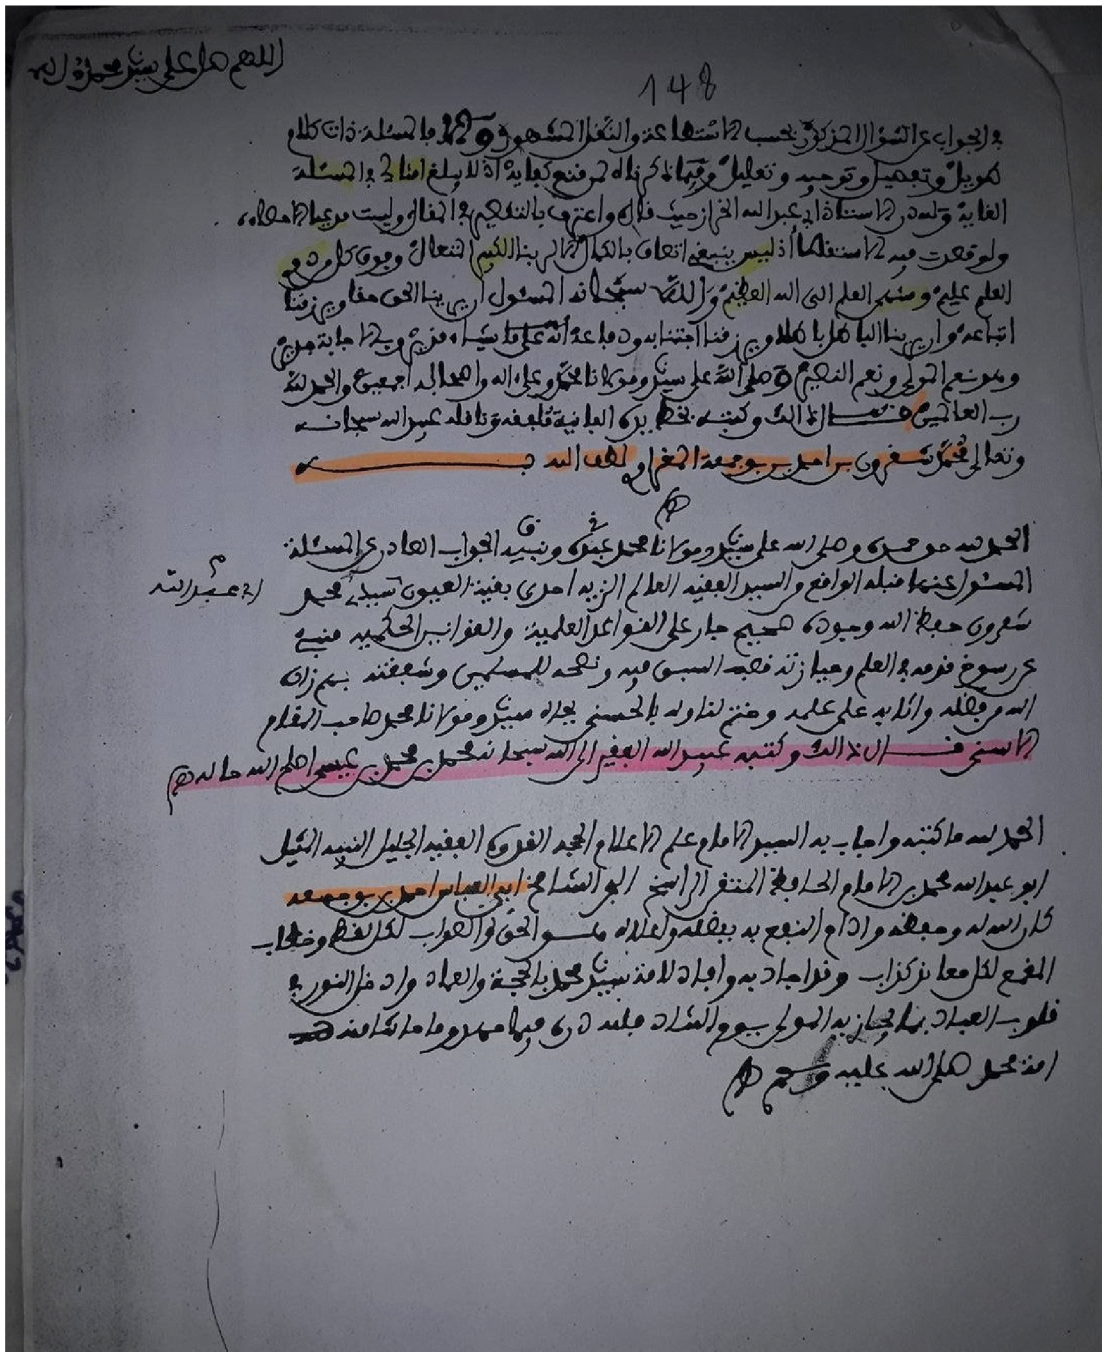 اللهم صل على سيدنا محمد وآله
148
في الجواب عن السؤال المذكور بحسب الاستطاعة والنقل المشهور والا فالمسئلة ذات كلام
طويل وتفصيل وتوجيه وتعليل وفيما ذكرناه لمن قنع كفاية اذ لا يبلغ امثالي في المسئلة
الغاية ولله در الاستاذ ابي عبد الله الخراز حيث قال واعترف بالتقصير في المقال وليست مدعيا الاحصاء
ولو قصدت فيه الاستقصا اذ ليس ينبغي اتصاف بالكمال الا لربنا الكبير المتعال وفوق كل من ذي
العلم عليم ومنتهى العلم الى الله العظيم والله سبحانه المسئول ان يرينا الحق حقا ويرزقنا
اتباعه وان يرينا الباطل باطلا ويرزقنا اجتنابه ودفاعه انه على ما يشاء قدير وبالاجابة جدير
وهو نعم المولى ونعم النصير وصلى الله على سيدنا ومولانا محمد وعلى اله واصحابه اجمعين والحمد لله
رب العالمين قال ذالك وكتبه بخط يده الفانية ملفقه وناقله عبيد الله سبحانه
وتعالى محمد شقرون بن احمد بن بوجمعة المغراوي لطف الله به
الحمد لله حق حمده وصلى الله على سيدنا ومولانا محمد عبده ونبيه الجواب الصادر عن المسئلة
المسئول عنها قبله الواقع من السيد الفقيه العالم النزيه احدى بقية العيون سيدي محمد
ابي عبد الله
شقرون حفظ الله وجوده صحيح جار على القواعد العلمية والقوانين الحكمية منبئ
عن رسوخ قدمه في العلم وحيازته قصب السبق فيه ونصحه للمسلمين وشفقته بهم زاده
الله من فضله واثابه على علمه وختم لنا وله بالحسنى بجاه سيدنا ومولانا محمد صاحب المقام
الاسنى قال ذالك وكتبه عبيد الله الفقير الى الله سبحانه محمد بن محمد بن عيسى اصلح الله حاله
الحمد لله ما كتبه واجاب به السيد الامام علم الاعلام الحجة القدوة الفقيه الجليل النبيه النبيل
ابو عبد الله محمد بن الامام الحافظ المتقن الراسخ ابي العباس احمد بن بوجمعة
كان الله له وحفظه وادام النفع به بفضله واعلاه هو الحق والصواب لكل لفظ وخطاب
المفحم لكل معاند كذاب وقد اجاد به وافاد لامة سيدنا محمد بالحجة والعماد وادخل النور في
قلوب العباد بما يجازيه المولى يوم التناد فلله دره فيما مهد وما حاشا منه
امة محمد صلى الله عليه وسلم